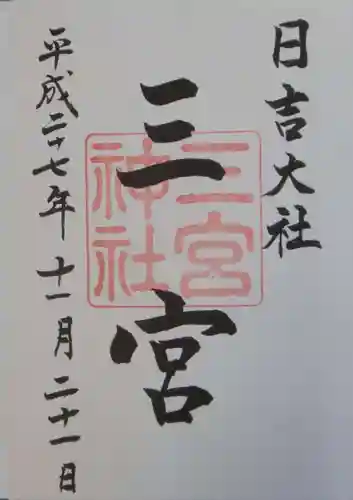 日吉大社
三宮
三宮神社
平成二十七年十一月二十一日